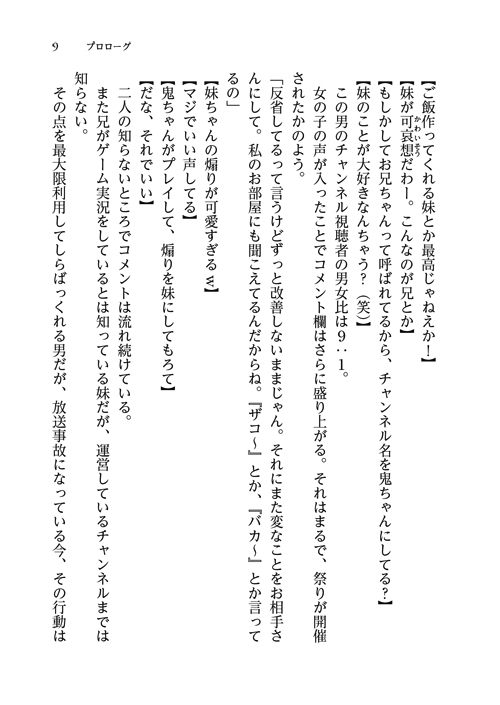 9 プロローグ
【ご飯作ってくれる妹とか最高じゃねえか！】
【妹が可哀想だわー。こんなのが兄とか】
かわいそう
【もしかしてお兄ちゃんって呼ばれてるから、チャンネル名を鬼ちゃんにしてる？】
【妹のことが大好きなんちゃう？（笑）】
この男のチャンネル視聴者の男女比は９：１。
女の子の声が入ったことでコメント欄はさらに盛り上がる。それはまるで、祭りが開催
されたかのよう。
「反省してるって言うけどずっと改善しないままじゃん。それにまた変なことをお相手さ
んにして。私のお部屋にも聞こえてるんだからね。『ザコ～』とか、『バカ～』とか言って
るの」
【妹ちゃんの煽りが可愛すぎるｗ】
【マジでいい声してる】
【鬼ちゃんがプレイして、煽りを妹にしてもろて】
【だな、それでいい】
二人の知らないところでコメントは流れ続けている。
また兄がゲーム実況をしているとは知っている妹だが、運営しているチャンネルまでは
知らない。
その点を最大限利用してしらばっくれる男だが、放送事故になっている今、その行動は